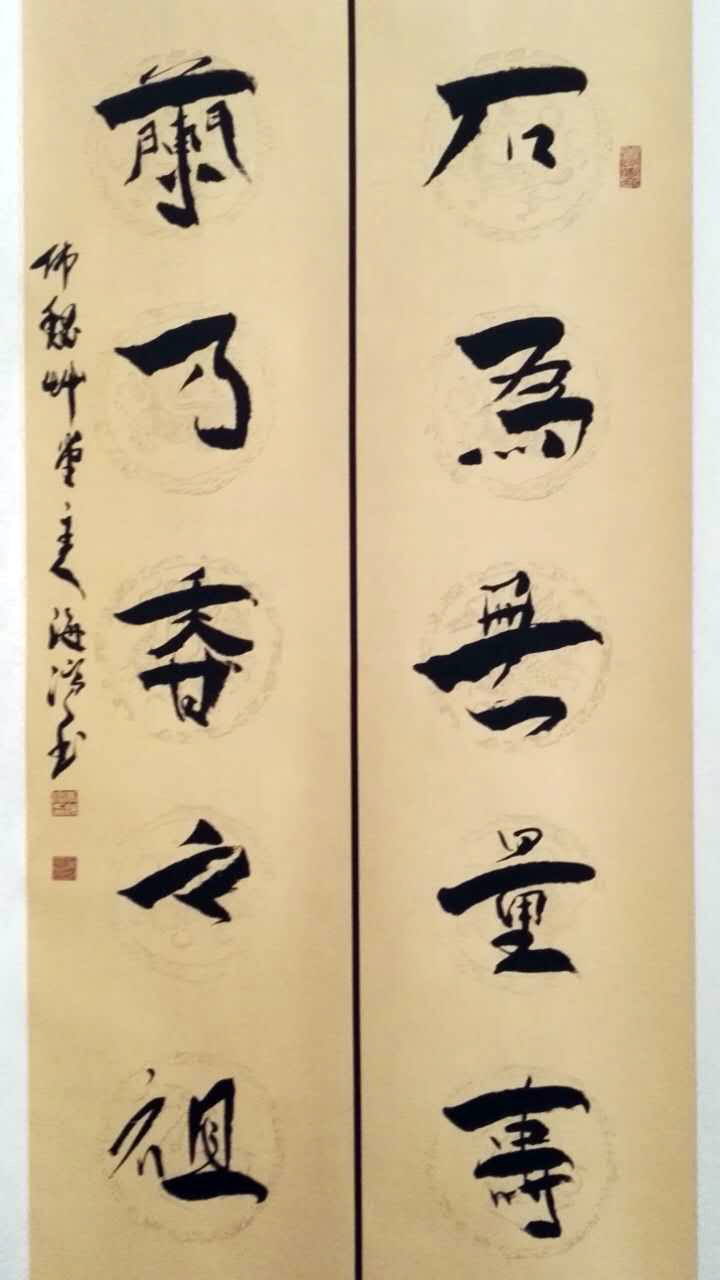 石為無量壽
蘭乃香之祖
佛魏艸堂主人海濱書